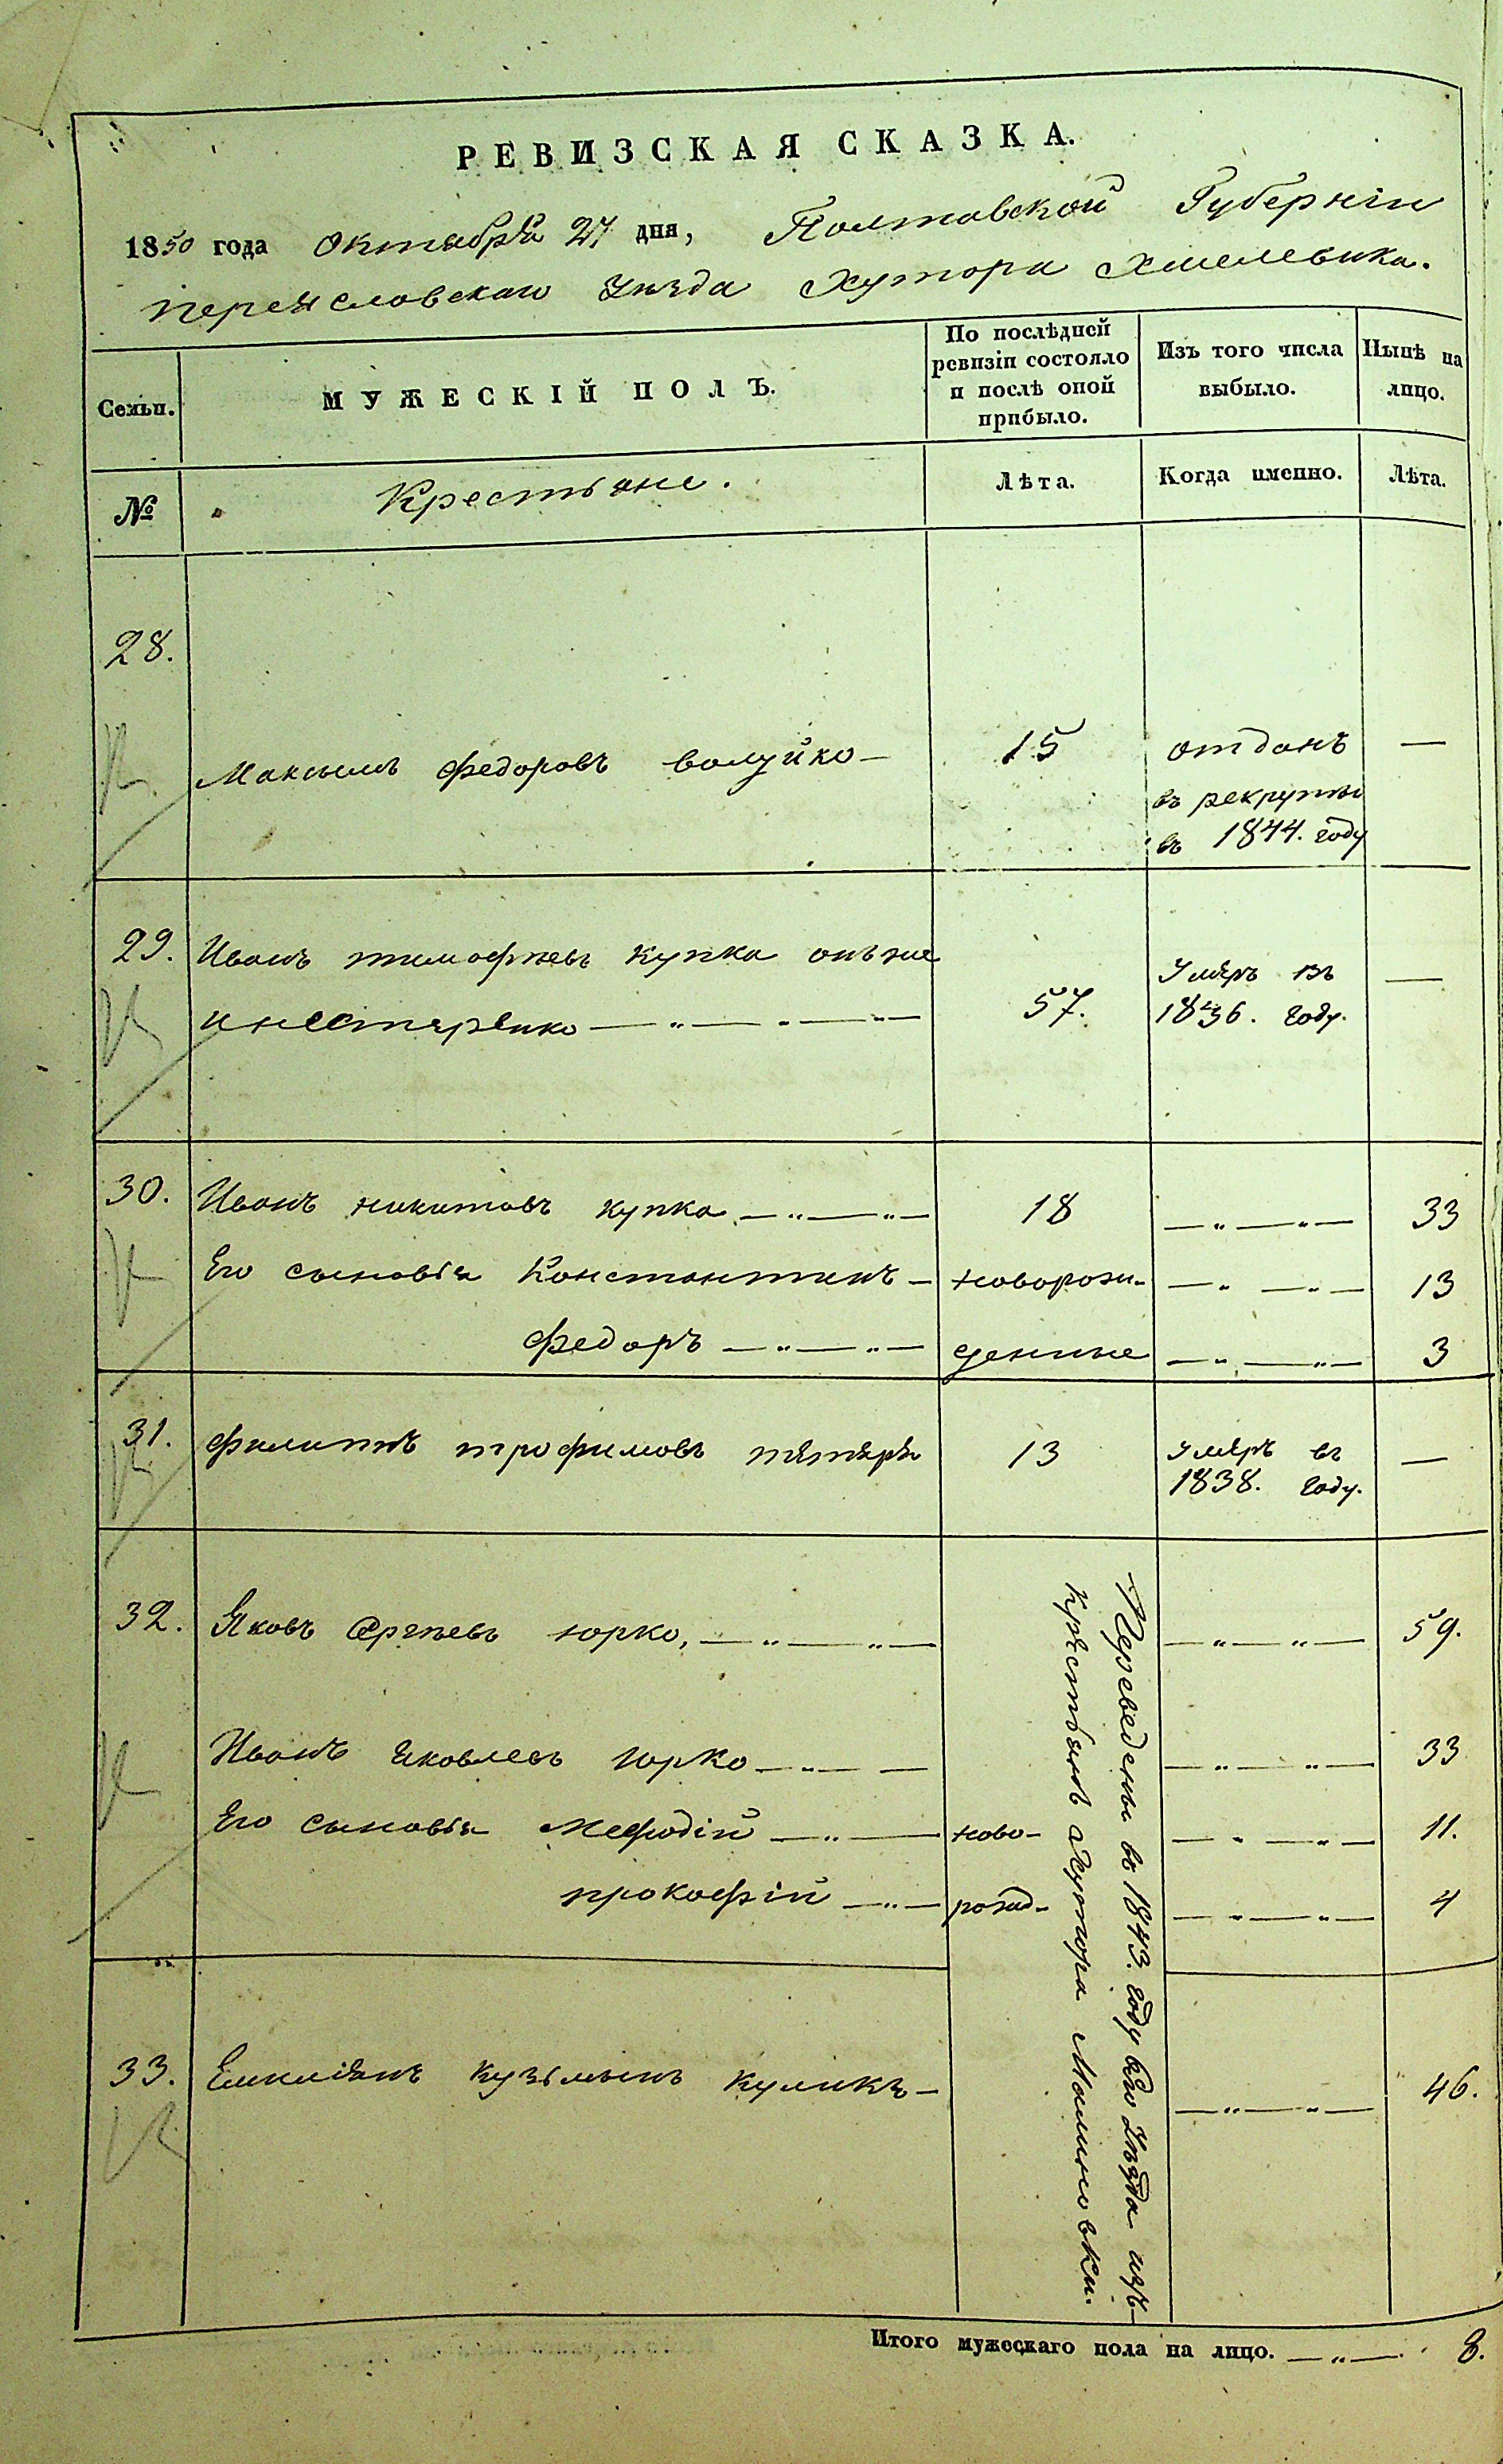 РЕВИЗСКАЯ СКАЗКА.
1850 года Октября 27 дня, Полтавской Губерніи
Переясловскаго Уезда Хутора Хмелевика.
Семьи. МУЖЕСКІЙ ПОЛЪ. По послѣдней ревизіи состояло и послѣ оной прибыло. Изъ того числа выбыло. Нынѣ на лицо.
№ Крестьяне. Лѣта. Когда именно. Лѣта.
28.
Максимъ федоровъ валуйко — 15 отданъ —
въ рекруты
въ 1844. году
29. Иванъ тимофеевъ купка онъ же
инестеренко — 57. Умеръ въ —
1836. году.
30. Иванъ никитовъ купка — 18 — 33
Его сыновья Константинъ — новорож- — 13
федоръ — денные — 3
31. филиппъ трофимовъ тетеря 13 Умеръ въ —
1838. году.
32. Яковъ Сергеевъ юрко, — 59.
Иванъ яковлевъ юрко — 33
Его сыновья мефодій — ново- — 11.
прокофій — рожд- — 4
Переведены въ 1843. году сего Уезда изъ
крестьянъ Хутора Малиновки.
33. Емиліянъ кузьминъ куликъ — 46.
Итого мужескаго пола на лицо. — 8.